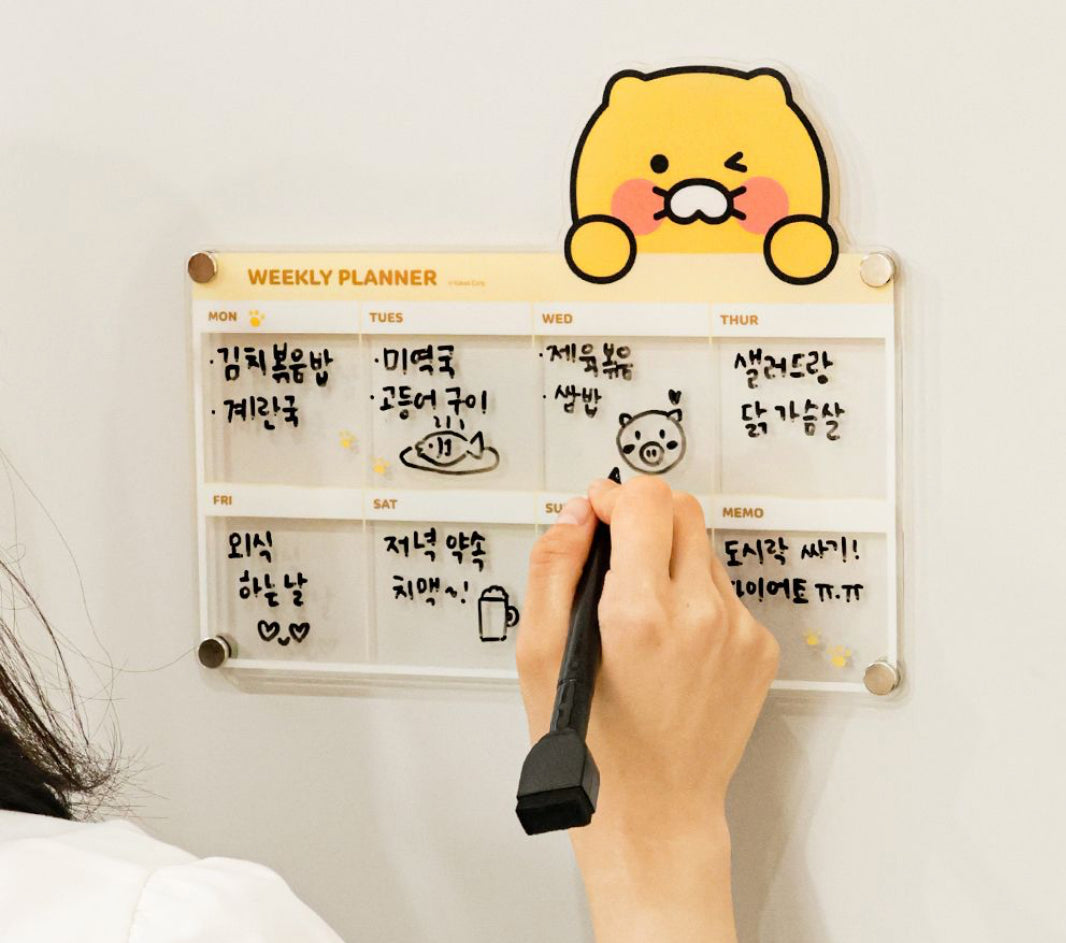 WEEKLY PLANNER
MON
TUES
WED
THUR
·김치볶음밥
·계란국
·미역국
·고등어 구이
·제육볶음
·쌈밥
샐러드랑
닭가슴살
FRI
SAT
MEMO
외식
하는 날
저녁 약속
치맥~!
도시락 싸기!
ㅠ.ㅠ